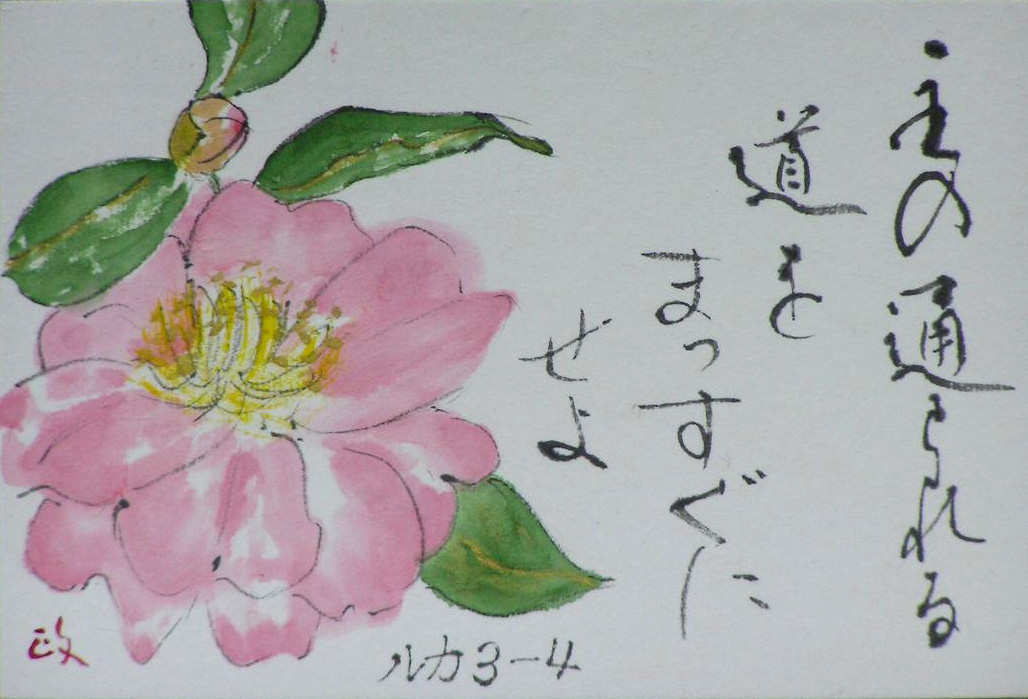 主の通られる
道を
まっすぐに
せよ
ルカ3-4
政